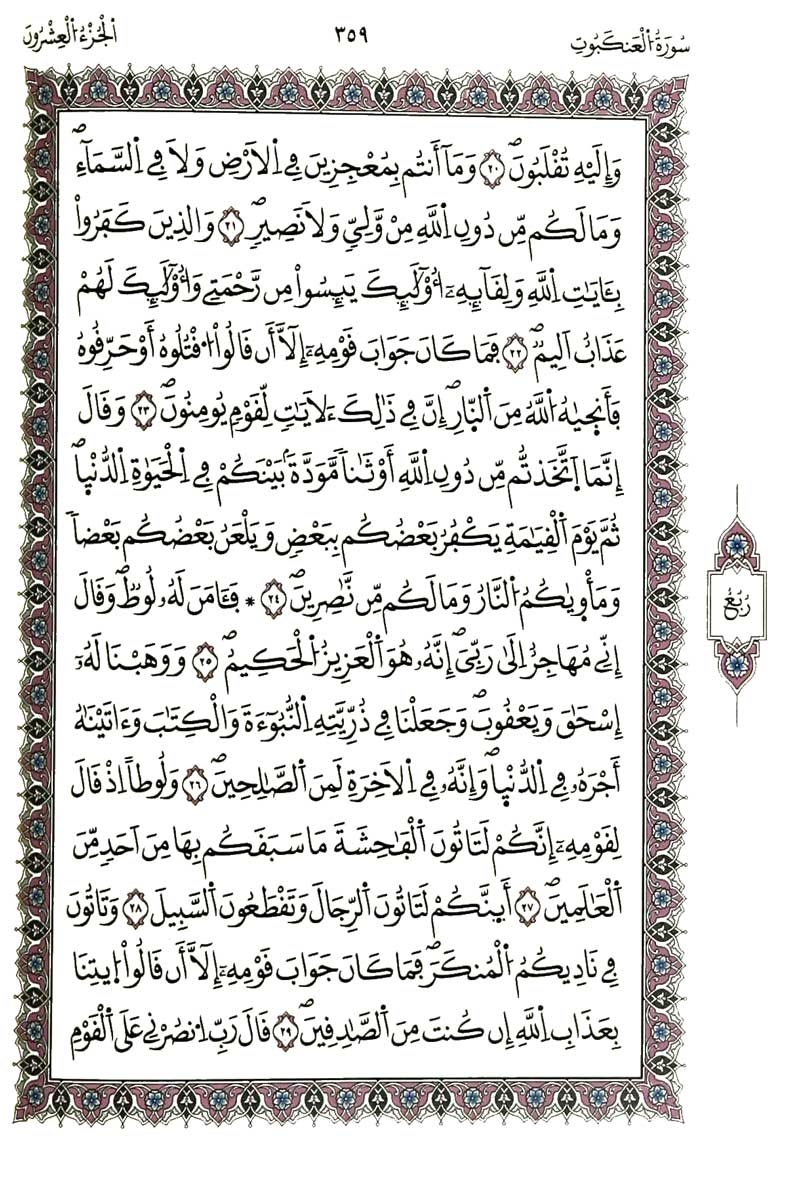 سُورَةُ اُ۬لْعَنكَبُوتِ ٣٥٩ اَ۬لْجُزْءُ اُ۬لْعِشْرُونَ
وَإِلَيْهِ تُقْلَبُونَۖ ٢٠ وَمَآ أَنتُم بِمُعْجِزِينَ فِے اِ۬لَارْضِ وَلَا فِے اِ۬لسَّمَآءِۖ
وَمَا لَكُم مِّن دُونِ اِ۬للَّهِ مِنْ وَّلِيّٖ وَلَا نَصِيرٖۖ ٢١ وَالذِينَ كَفَرُواْ
بِـَٔايَٰتِ اِ۬للَّهِ وَلِقَآئِهِۦٓ أُوْلَٰٓئِكَ يَئِسُواْ مِن رَّحْمَتِے وَأُوْلَٰٓئِكَ لَهُمْ
عَذَابٌ اَلِيمٞۖ ٢٢ فَمَا كَانَ جَوَابَ قَوْمِهِۦٓ إِلَّآ أَن قَالُواْ اُ۟قْتُلُوهُ أَوْ حَرِّقُوهُ
فَأَنج۪يٰهُ اُ۬للَّهُ مِنَ اَ۬لنّ۪ارِۖ إِنَّ فِے ذَٰلِكَ ءَلَايَٰتٖ لِّقَوْمٖ يُومِنُونَۖ ٢٣ وَقَالَ
إِنَّمَا اَ۪تَّخَذتُّم مِّن دُونِ اِ۬للَّهِ أَوْثَٰناٗ مَّوَدَّةَۢ بَيْنَكُمْ فِے اِ۬لْحَيَوٰةِ اِ۬لدُّنْي۪اۖ
ثُمَّ يَوْمَ اَ۬لْقِيَٰمَةِ يَكْفُرُ بَعْضُكُم بِبَعْضٖ وَيَلْعَنُ بَعْضُكُم بَعْضاٗ
وَمَأْو۪يٰكُمُ اُ۬لنَّارُ وَمَا لَكُم مِّن نَّٰصِرِينَۖ ٢٤ * فَـَٔامَنَ لَهُۥ لُوطٞۖ وَقَالَ
إِنِّے مُهَاجِرٌ اِلَىٰ رَبِّيَۖ إِنَّهُۥ هُوَ اَ۬لْعَزِيزُ اُ۬لْحَكِيمُۖ ٢٥ وَوَهَبْنَا لَهُۥٓ
إِسْحَٰقَ وَيَعْقُوبَۖ وَجَعَلْنَا فِے ذُرِّيَّتِهِ اِ۬لنُّبُوٓءَةَ وَالْكِتَٰبَ وَءَاتَيْنَٰهُ
أَجْرَهُۥ فِے اِ۬لدُّنْي۪اۖ وَإِنَّهُۥ فِے اِ۬لَاخِرَةِ لَمِنَ اَ۬لصَّٰلِحِينَۖ ٢٦ وَلُوطاً اِذْ قَالَ
لِقَوْمِهِۦٓ إِنَّكُمْ لَتَاتُونَ اَ۬لْفَٰحِشَةَ مَا سَبَقَكُم بِهَا مِنَ اَحَدٖ مِّنَ
اَ۬لْعَٰلَمِينَۖ ٢٧ أَئِنَّكُمْ لَتَاتُونَ اَ۬لرِّجَالَ وَتَقْطَعُونَ اَ۬لسَّبِيلَ ٢٨ وَتَاتُونَ
فِے نَادِيكُمُ اُ۬لْمُنكَرَۖ فَمَا كَانَ جَوَابَ قَوْمِهِۦٓ إِلَّآ أَن قَالُواْ اُ۪يتِنَا
بِعَذَابِ اِ۬للَّهِ إِن كُنتَ مِنَ اَ۬لصَّٰدِقِينَۖ ٢٩ قَالَ رَبِّ اِ۟نصُرْنِے عَلَى اَ۬لْقَوْمِ
رُبْعُ